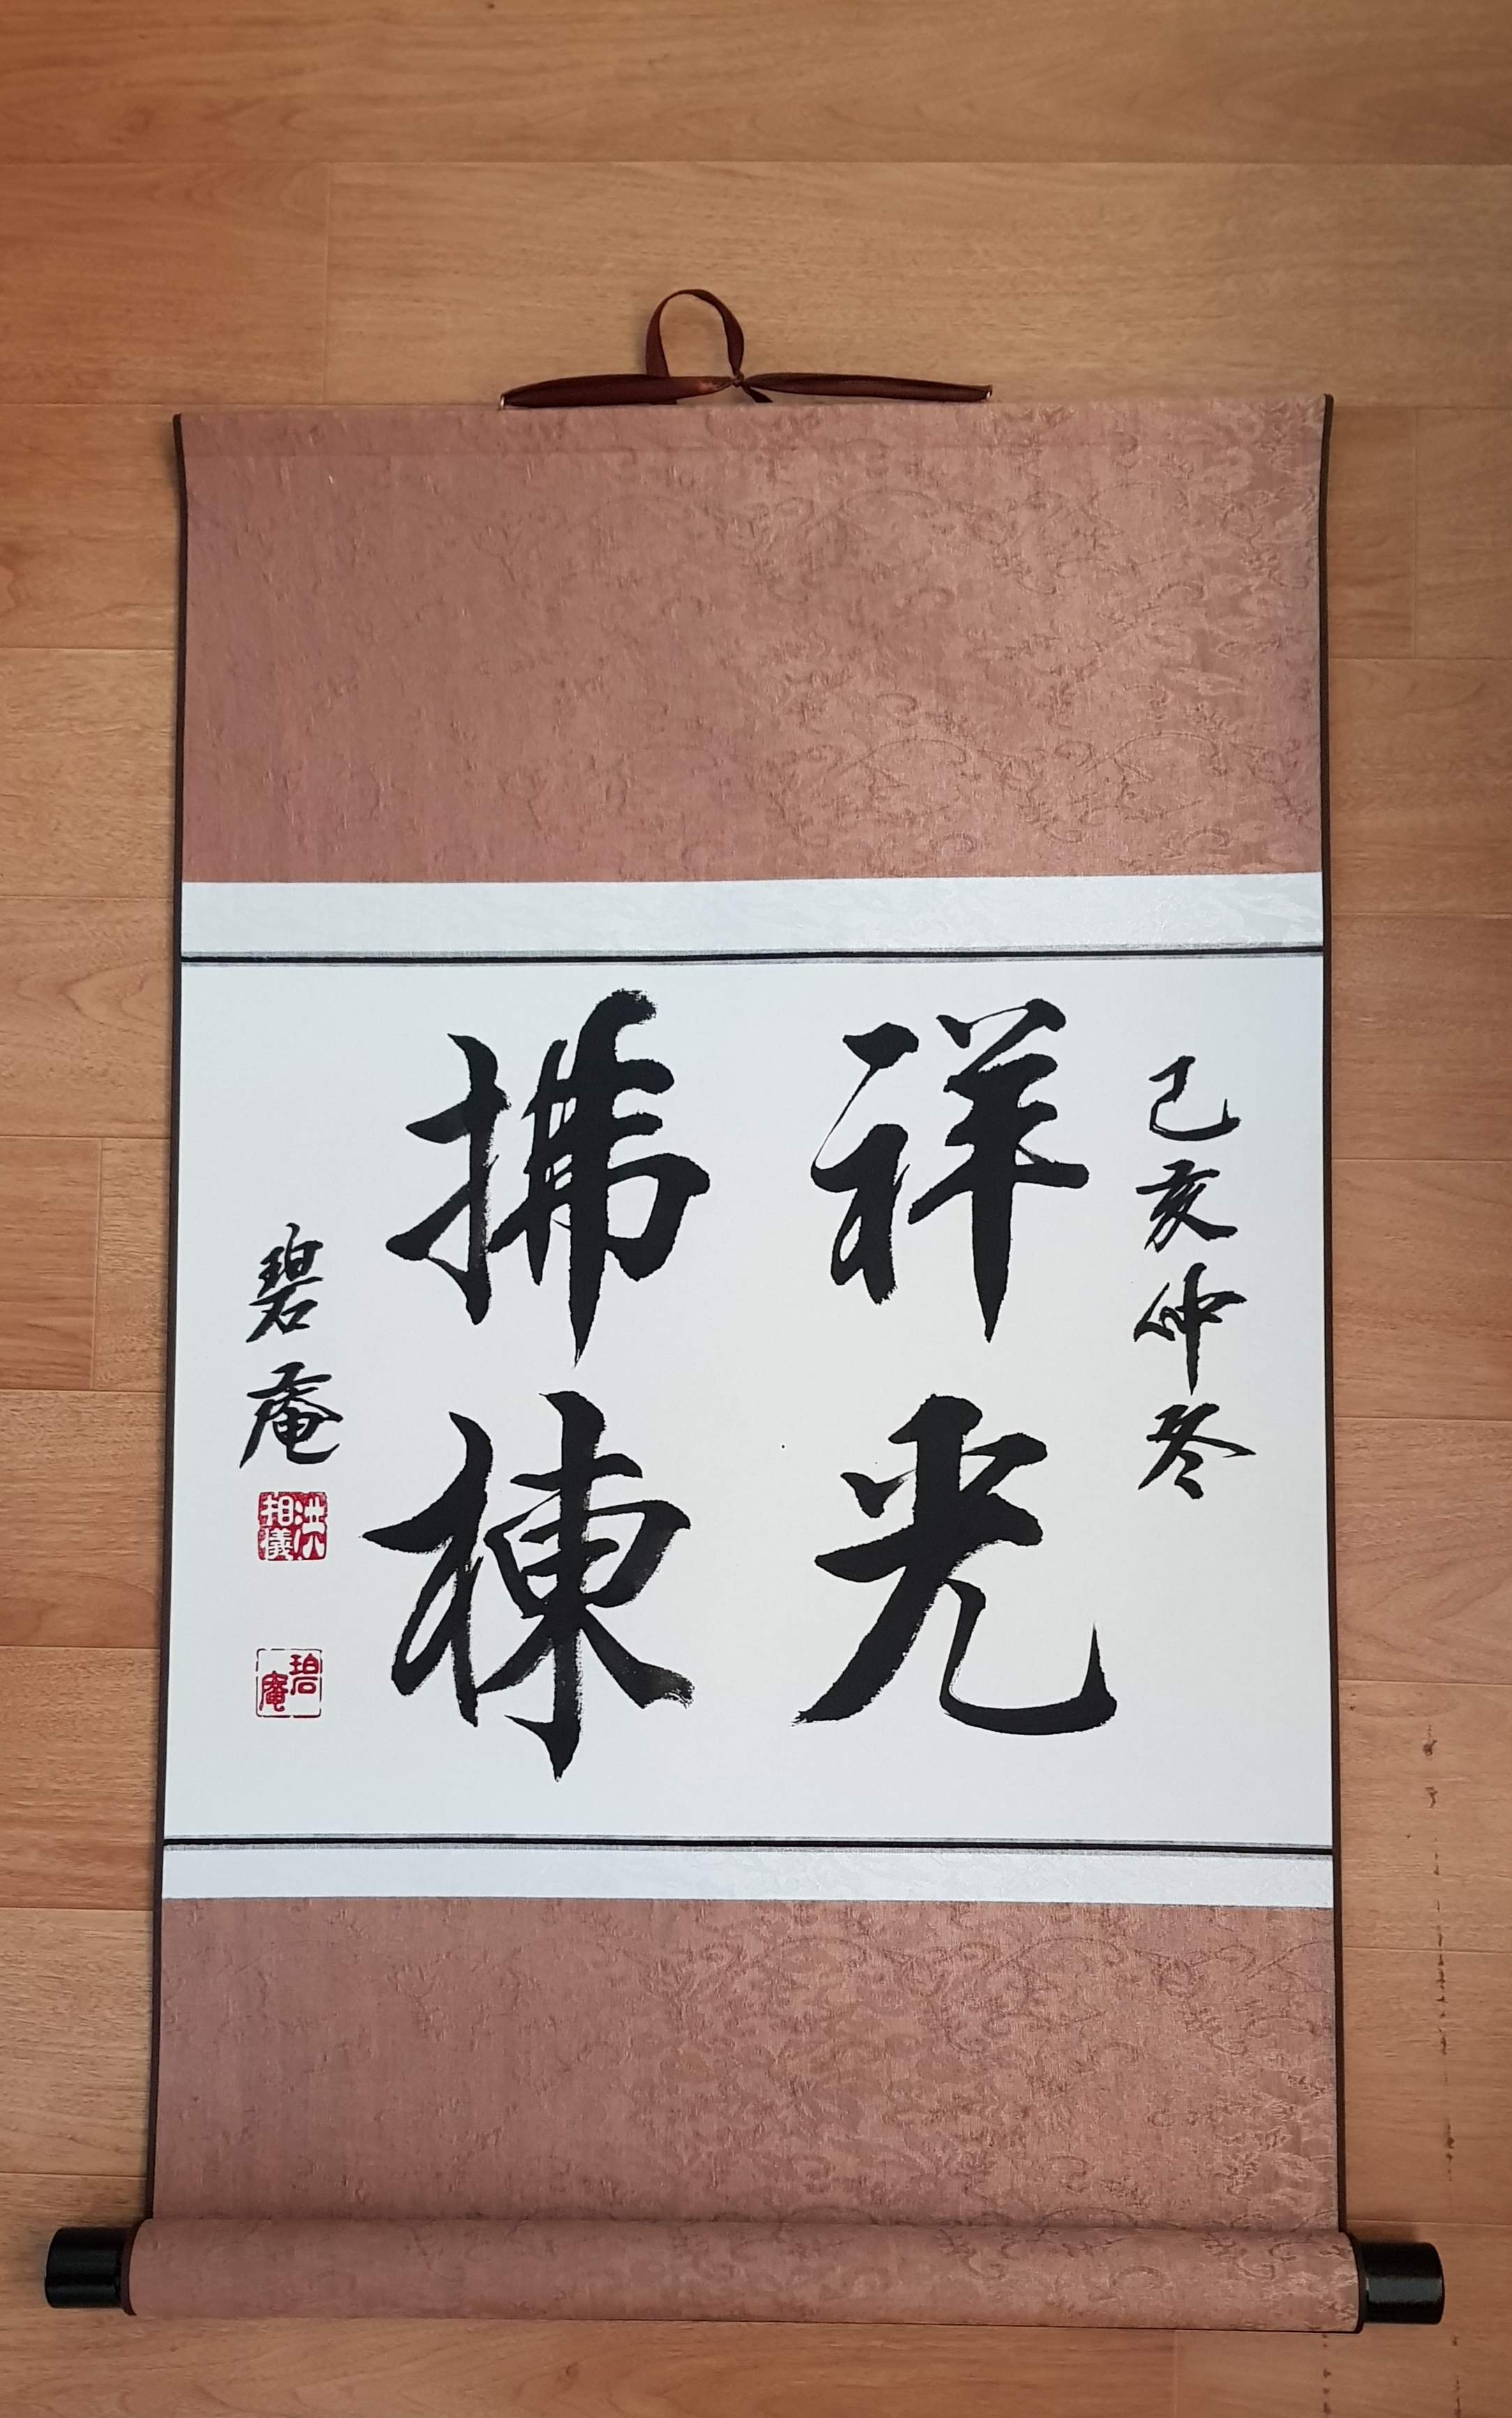 己亥仲冬
祥光
拂棟
碧庵
洪相儀
碧庵